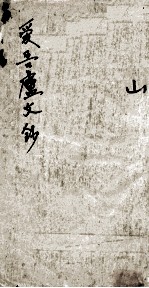 山
愛吾廬文鈔